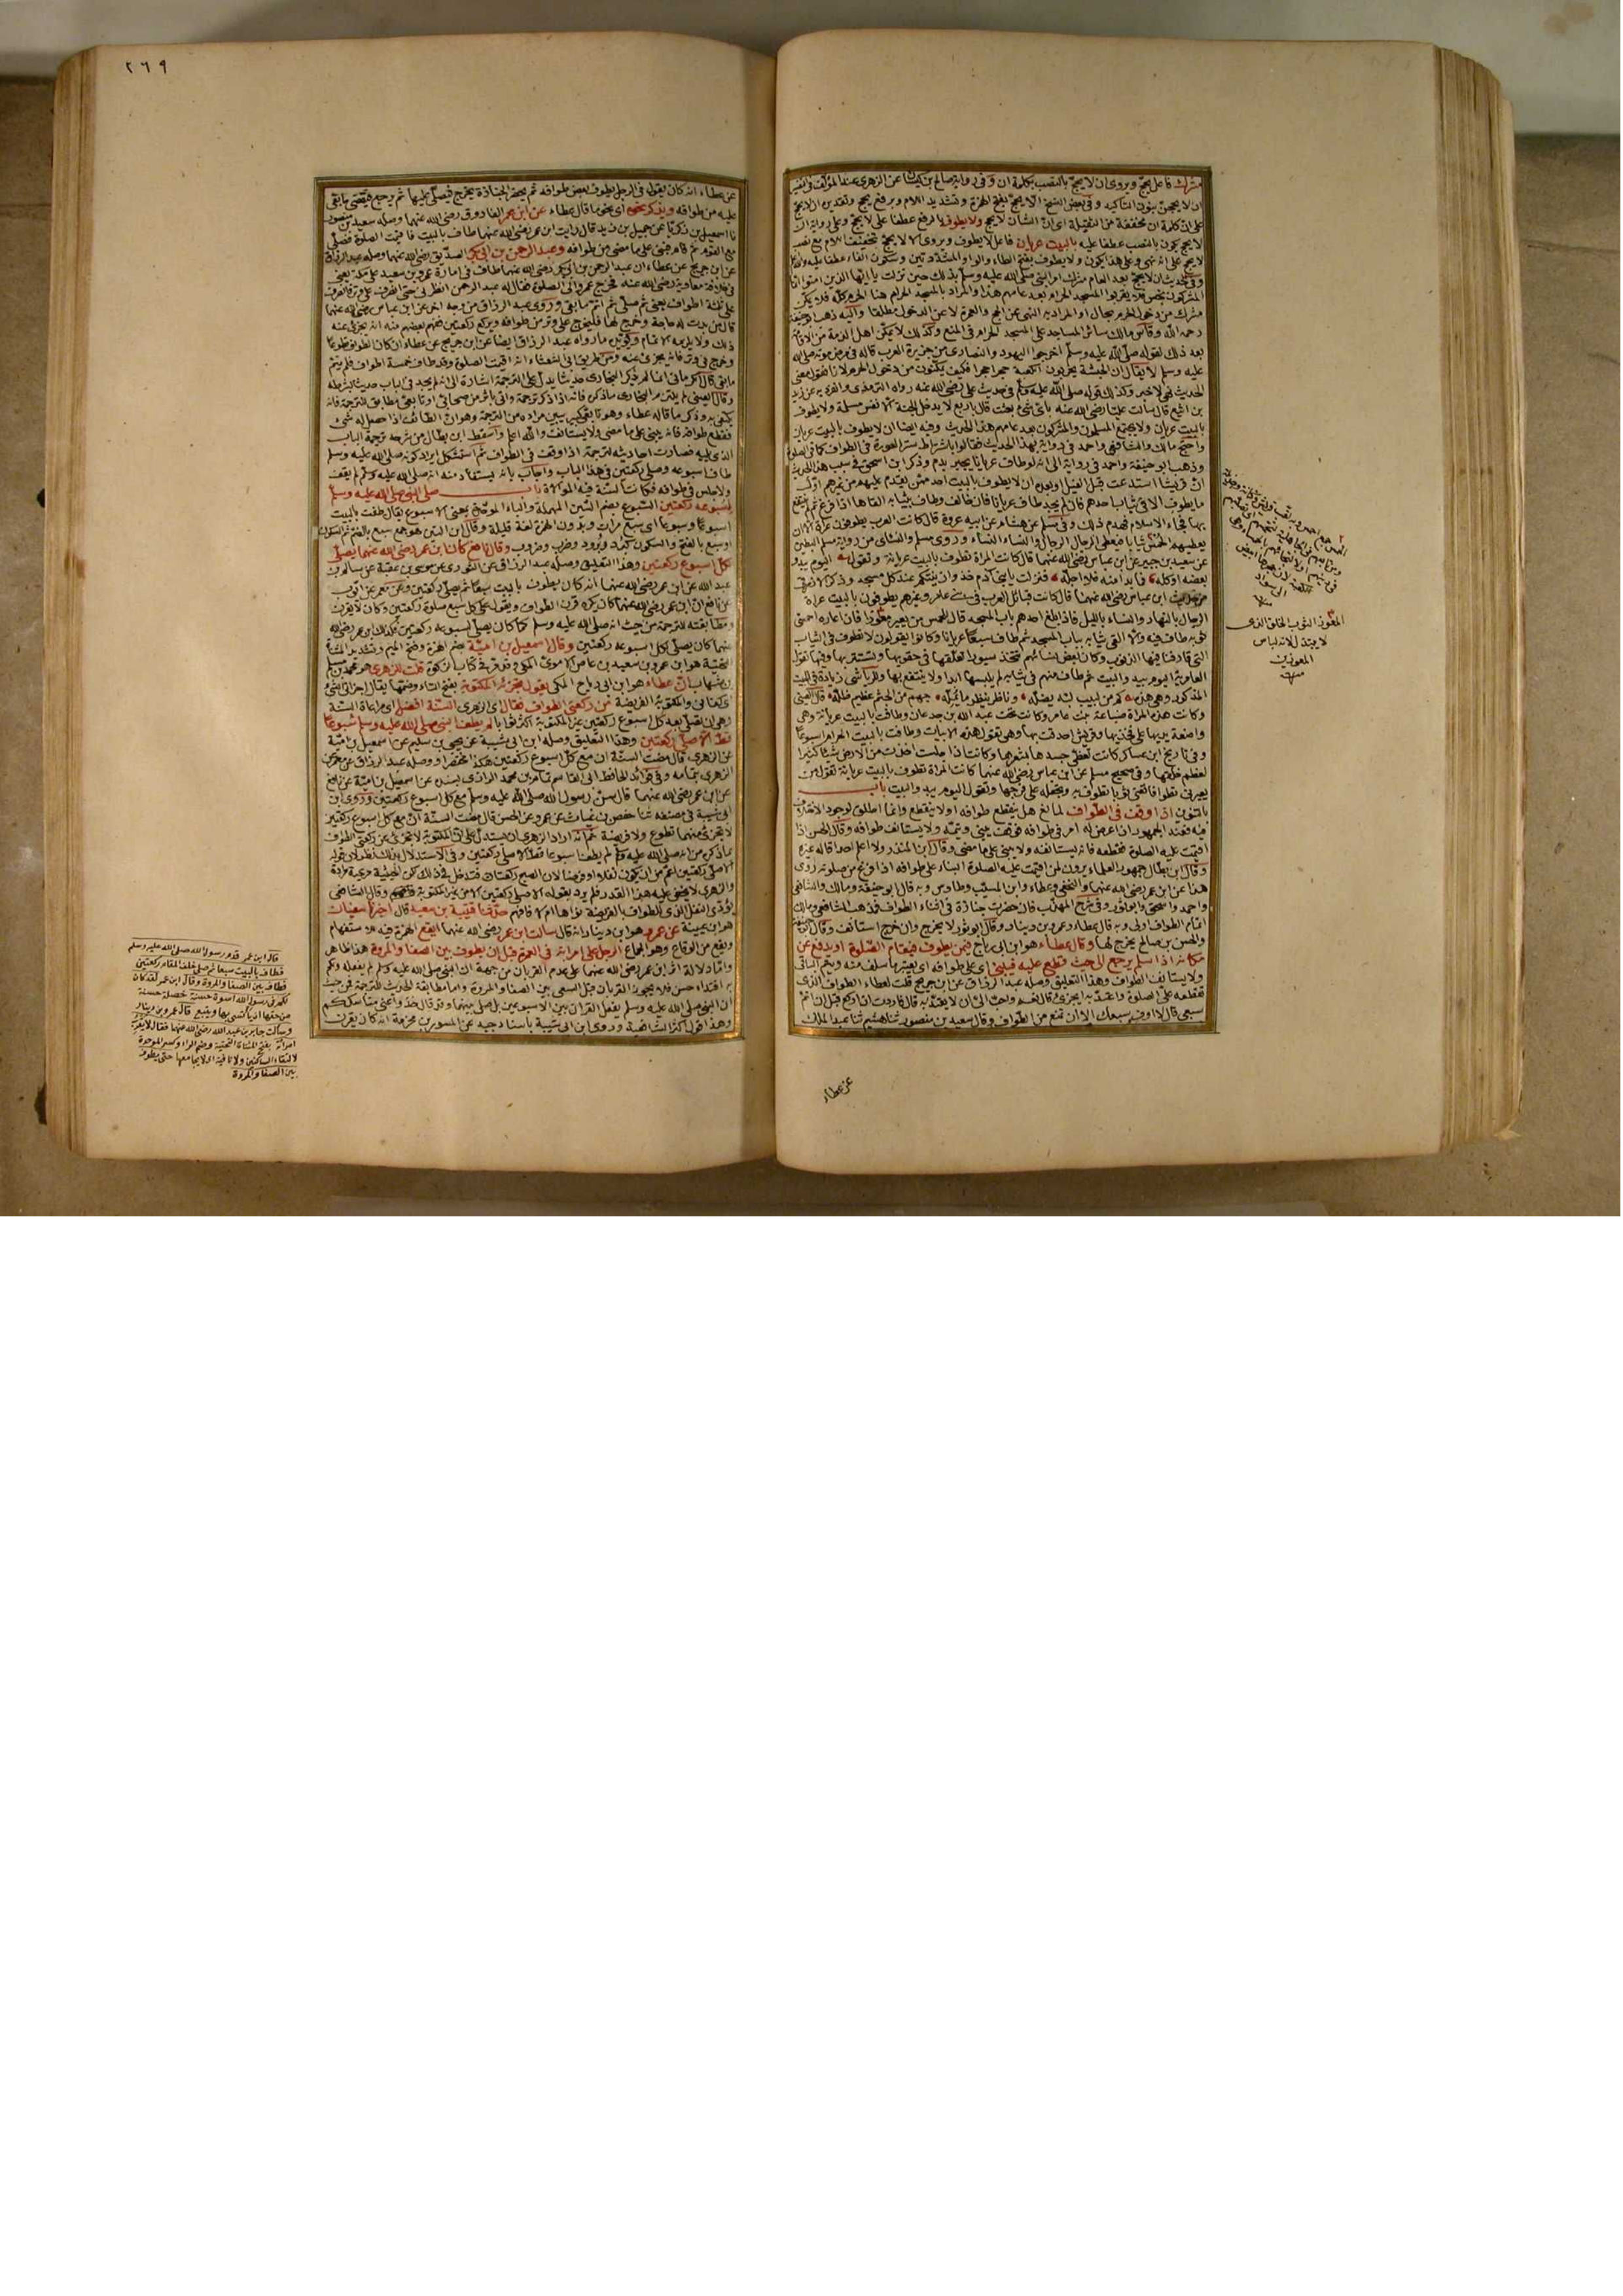 مشرك فاعل يحج ويروى ان لا يحج بالنصب بكلمة ان وفي رواية صالح بن كيسان عن الزهري عند المؤلف في التفسير
ان لا يحجن بنون التاكيد وفي بعض النسخ الا لا يحج بفتح الهمزة وتشديد اللام وبرفع يحج وتقديره ان لا يحج
على ان كلمة ان مخففة من الثقيلة اي ان الشان لا يحج ولا يطوف بالرفع عطفا على لا يحج وعلى رواية ان
لا يحج يكون بالنصب عطفا عليه بالبيت عريان فاعل لا يطوف ويروى الا لا يحج بتخفيف اللام مع نصب
لا يحج على انه نهي وعلى هذا يكون ولا يطوف بفتح الطاء والواو المشددتين وسكون الفاء عطفا عليه
المشركون نجس فلا يقربوا المسجد الحرام بعد عامهم هذا والمراد بالمسجد الحرام هنا الحرم كله فلا يمكن
مشرك من دخول الحرم بحال او المراد به النهي عن الحج والعمرة لا عن الدخول مطلقا واليه ذهب ابو حنيفة
رحمه الله وقاس مالك سائر المساجد على المسجد الحرام في المنع وكذلك لا يمكن اهل الذمة من الاقامة
بعد ذلك لقوله صلى الله عليه وسلم اخرجوا اليهود والنصارى من جزيرة العرب قاله في مرض موته صلى الله
عليه وسلم لا يقال ان الحبشة يخربون الكعبة حجرا حجرا فكيف يمكنون من دخول الحرم لانا نقول معنى
بن اثيع قال سالت عليا رضي الله عنه باي شيء بعثت قال باربع لا يدخل الجنة الا نفس مسلمة ولا يطوف
بالبيت عريان ولا يجتمع المسلمون والمشركون بعد عامهم هذا الحديث وفيه ايضا ان لا يطوف بالبيت عريان
واحتج مالك والشافعي واحمد في رواية بهذا الحديث فقالوا باشتراط ستر العورة في الطواف كما في الصلوة
وذهب ابو حنيفة واحمد في رواية الى انه لو طاف عريانا يجبر بدم وذكر ابن اسحق في سبب هذا الحديث
ان قريشا ابتدعت قبل الفيل او بعده ان لا يطوف بالبيت احد ممن يقدم عليهم من غيرهم اول
ما يطوف الا في ثياب احدهم فان لم يجد طاف عريانا فان خالف وطاف بثيابه القاها اذا فرغ ثم لم ينتفع
بها فجاء الاسلام فهدم ذلك وفي مسلم عن هشام عن ابيه عروة قال كانت العرب يطوفون عراة الا ان
يعطيهم الحمس ثيابا فيعطي الرجال الرجال والنساء النساء وروى مسلم والنسائي من رواية مسلم البطين
عن سعيد بن جبير عن ابن عباس رضي الله عنهما قال كانت المراة تطوف بالبيت عريانة وتقول اليوم يبدو
بعضه او كله فما بدا منه فلا احله فنزلت يا بني آدم خذوا زينتكم عند كل مسجد وذكر الازرقي
من حديث ابن عباس رضي الله عنهما قال كانت قبائل العرب من بني عامر وغيرهم يطوفون بالبيت عراة
الرجال بالنهار والنساء بالليل فاذا بلغ احدهم باب المسجد قال للحمس من يعير معوزا فان اعاره احمسي
ثوبه طاف فيه والا القى ثيابه بباب المسجد ثم طاف سبعا عريانا وكانوا يقولون لا نطوف في الثياب
التي قارفنا فيها الذنوب وكان بعض نسائهم تتخذ سيورا تعلقها في حقويها وتستتر بها وفيها تقول
المذكور وهي هذه كم من لبيب لبه يضله وناظر ينظر ما يمله جهم من الجثم عظيم ظله قال العيني
وكانت هذه المراة ضباعة بنت عامر وكانت تحت عبد الله بن جدعان وطافت بالبيت عريانة وهي
واضعة يديها على فخذيها وقريش احدقت بها وهي تقول هذه الابيات وطافت بالبيت الحرام اسبوعا
وفي تاريخ ابن عساكر كانت تغطي جسدها بشعرها وكانت اذا جلست اخذت من الارض شيئا كثيرا
لعظم خلقها وفي صحيح مسلم عن ابن عباس رضي الله عنهما كانت المراة تطوف بالبيت عريانة فتقول من
يعيرني تطوافا تعني ثوبا تطوف به وتجعله على فرجها وتقول اليوم يبدو البيت باب
بالتنوين اذا وقف في الطواف لمانع هل ينقطع طوافه اولا ينقطع وانما اطلق لوجود الاختلاف
فيه فعند الجمهور اذا عرض له امر في طوافه فوقف يبني ويتمه ولا يستانف طوافه وقال الحسن اذا
اقيمت عليه الصلوة فقطعه فانه يستانفه ولا يبني على ما مضى وقال ابن المنذر ولا اعلم احدا قاله غيره
وقال ابن بطال جمهور العلماء يرون لمن اقيمت عليه الصلوة البناء على طوافه اذا فرغ من صلوته روي
هذا عن ابن عمر رضي الله عنهما والنخعي وعطاء وابن المسيب وطاوس وبه قال ابو حنيفة ومالك والشافعي
واحمد واسحق وابو ثور وفي شرح المهذب فان حضرت جنازة في اثناء الطواف فمذهب الشافعي ومالك
اتمام الطواف اولى وبه قال عطاء وعمرو بن دينار وقال ابو ثور لا يخرج وان خرج استانف وقال ابو حنيفة
والحسن بن صالح يخرج لها وقال عطاء هو ابن ابي رباح فيمن يطوف فتقام الصلوة او يدفع عن
مكانه اذا سلم يرجع الى حيث قطع عليه فيبني اي على طوافه اي يعتبر ما سلف منه ويتم الباقي
ولا يستانف الطواف وهذا التعليق وصله عبد الرزاق عن ابن جريج قلت لعطاء الطواف الذي
يقطعه على الصلوة واعتد به ايجزئ قال نعم واحب الي ان لا يعتد به قال فاردت ان اركع قبل ان اتم
سبعي قال لا اوف سبعك الا ان تمنع من الطواف وقال سعيد بن منصور ثنا هشيم ثنا عبد الملك
عن عطاء
المعوز الثوب الخلق الذي
لا يبتذل لانه لباس
المعوزين
منه
٢٦٩
عن عطاء انه كان يقول في الرجل يطوف بعض طوافه ثم يحضر الجنازة يخرج فيصلي عليها ثم يرجع فيقضي ما بقي
عليه من طوافه ويذكر نحوه اي نحو ما قال عطاء عن ابن عمر الفاروق رضي الله عنهما وصله سعيد بن منصور
نا اسمعيل بن زكريا عن جميل بن زيد قال رايت ابن عمر رضي الله عنهما طاف بالبيت فاقيمت الصلوة فصلى
مع القوم ثم قام فبنى على ما مضى من طوافه وعبد الرحمن بن ابي بكر الصديق رضي الله عنهما وصله عبد الرزاق
عن ابن جريج عن عطاء ان عبد الرحمن بن ابي بكر رضي الله عنهما طاف في امارة عمرو بن سعيد على مكة يعني
في خلافة معاوية رضي الله عنه فخرج عمرو الى الصلوة فقال له عبد الرحمن انظرني حتى انصرف على وتر فانصرف
على ثلثة اطواف يعني ثم صلى ثم اتم ما بقي وروى عبد الرزاق من وجه اخر عن ابن عباس رضي الله عنهما
قال من بدت له حاجة وخرج لها فليخرج على وتر من طوافه ويركع ركعتين ففهم بعضهم منه انه يجزئ عنه
ذلك ولا يلزمه الاتمام ويؤيده ما رواه عبد الرزاق ايضا عن ابن جريج عن عطاء ان كان الطواف تطوعا
وخرج في وتر فانه يجزئ عنه ومن طريق ابي الشعثاء انه اقيمت الصلوة وقد طاف خمسة اطواف فلم يتم
ما بقي قال الكرماني انما لم يذكر البخاري حديثا يدل على الترجمة اشارة الى انه لم يجد في الباب حديثا بشرطه
فقطع طوافه فانه يبني على ما مضى ولا يستانف والله اعلم واسقط ابن بطال من شرحه ترجمة الباب
الذي يليه فصارت احاديثه لترجمة اذا وقف في الطواف ثم استشكل ايراد كونه صلى الله عليه وسلم
طاف اسبوعه وصلى ركعتين في هذا الباب واجاب بانه يستفاد منه انه صلى الله عليه وسلم لم يقف
ولا جلس في طوافه فكانت السنة فيه الموالاة باب صلى النبي صلى الله عليه وسلم
لسبوعه ركعتين السبوع بضم السين المهملة والباء الموحدة بمعنى الاسبوع يقال طفت بالبيت
اسبوعا وسبوعا اي سبع مرات وبدون الهمزة لغة قليلة وقال ابن التين هو جمع سبع بالضم ثم السكون
او سبع بالفتح والسكون كبرد وبرود وضرب وضروب وقال نافع كان ابن عمر رضي الله عنهما يصلي
لكل اسبوع ركعتين وهذا التعليق وصله عبد الرزاق عن الثوري عن موسى بن عقبة عن سالم بن
عبد الله عن ابن عمر رضي الله عنهما انه كان يطوف بالبيت سبعا ثم يصلي ركعتين وعن معمر عن ايوب
عن نافع ان ابن عمر رضي الله عنهما كان يكره قرن الطواف ويقول على كل سبع صلوة ركعتين وكان لا يقرن
ومطابقته للترجمة من حيث انه صلى الله عليه وسلم كما كان يصلي لسبوعه ركعتين فكذلك ابن عمر رضي الله
عنهما كان يصلي لكل اسبوعه ركعتين وقال اسمعيل بن امية بضم الهمزة وفتح الميم وتشديد المثناة
التحتية هو ابن عمرو بن سعيد بن عاص الاموي المكي وقد مر في كتاب الزكوة قلت للزهري هو محمد بن مسلم
بن شهاب ان عطاء هو ابن ابي رباح المكي يقول تجزئه المكتوبة بفتح التاء وضمها يقال اجزاني الشيء
اي كفاني والمكتوبة الفريضة من ركعتي الطواف فقال اي الزهري السنة افضل اي مراعاة السنة
وهي ان يصلي بعد كل اسبوع ركعتين غير المكتوبة لم يطف النبي صلى الله عليه وسلم سبوعا
قط الا صلى ركعتين وهذا التعليق وصله ابن ابي شيبة عن يحيى بن سليم عن اسمعيل بن امية
عن الزهري قال مضت السنة ان مع كل اسبوع ركعتين هكذا مختصرا ووصله عبد الرزاق عن معمر عن
الزهري بتمامه وفي فوائد الحافظ ابي القاسم تمام بن محمد الرازي بسنده عن اسمعيل بن امية عن نافع
عن ابن عمر رضي الله عنهما قال سن رسول الله صلى الله عليه وسلم مع كل اسبوع ركعتين وروى ابن
ابي شيبة في مصنفه ثنا حفص بن غياث عن عمرو عن الحسن قال مضت السنة ان مع كل اسبوع ركعتين
لا يجزئ منهما تطوع ولا فريضة ثم انه اراد الزهري ان يستدل على ان المكتوبة لا تجزئ عن ركعتي الطواف
بما ذكره من انه صلى الله عليه وسلم لم يطف اسبوعا قط الا صلى ركعتين وفي الاستدلال بذلك نظر لان قوله
الا صلى ركعتين اعم من ان يكون نفلا او فرضا لان الصبح ركعتان فتدخل في ذلك لكن الحيثية مرعية مرادة
والزهري لا يخفى عليه هذا القدر فلم يرد بقوله الا صلى ركعتين الا من غير المكتوبة فافهم وقال الشافعي
حدثنا قتيبة بن سعيد قال اخبرنا سفيان
هو ابن عيينة عن عمرو هو ابن دينار انه قال سالت ابن عمر رضي الله عنهما ايقع الهمزة فيه للاستفهام
ويقع من الوقاع وهو الجماع الرجل على امراته في العمرة قبل ان يطوف بين الصفا والمروة هذا ظاهر
ان النبي صلى الله عليه وسلم لم يفعل القران بين الاسبوعين بل صلى بينهما وقد قال خذوا عني مناسككم
وهذا قول اكثر الشافعية وروى ابن ابي شيبة باسناد جيد عن المسور بن مخرمة انه كان يقرن
قال ابن عمر قدم رسول الله صلى الله عليه وسلم
فطاف بالبيت سبعا ثم صلى خلف المقام ركعتين
فطاف بين الصفا والمروة وقال ابن عمر لقد كان
لكم في رسول الله اسوة حسنة خصلة حسنة
من حقها ان يؤتسى بها ويتبع قال عمرو بن دينار
وسالت جابر بن عبد الله رضي الله عنهما فقال لا يقرب
امراته بفتح المثناة التحتية وضم الراء وكسر الموحدة
لالتقاء الساكنين ولا نافية اي لا يجامعها حتى يطوف
بين الصفا والمروة